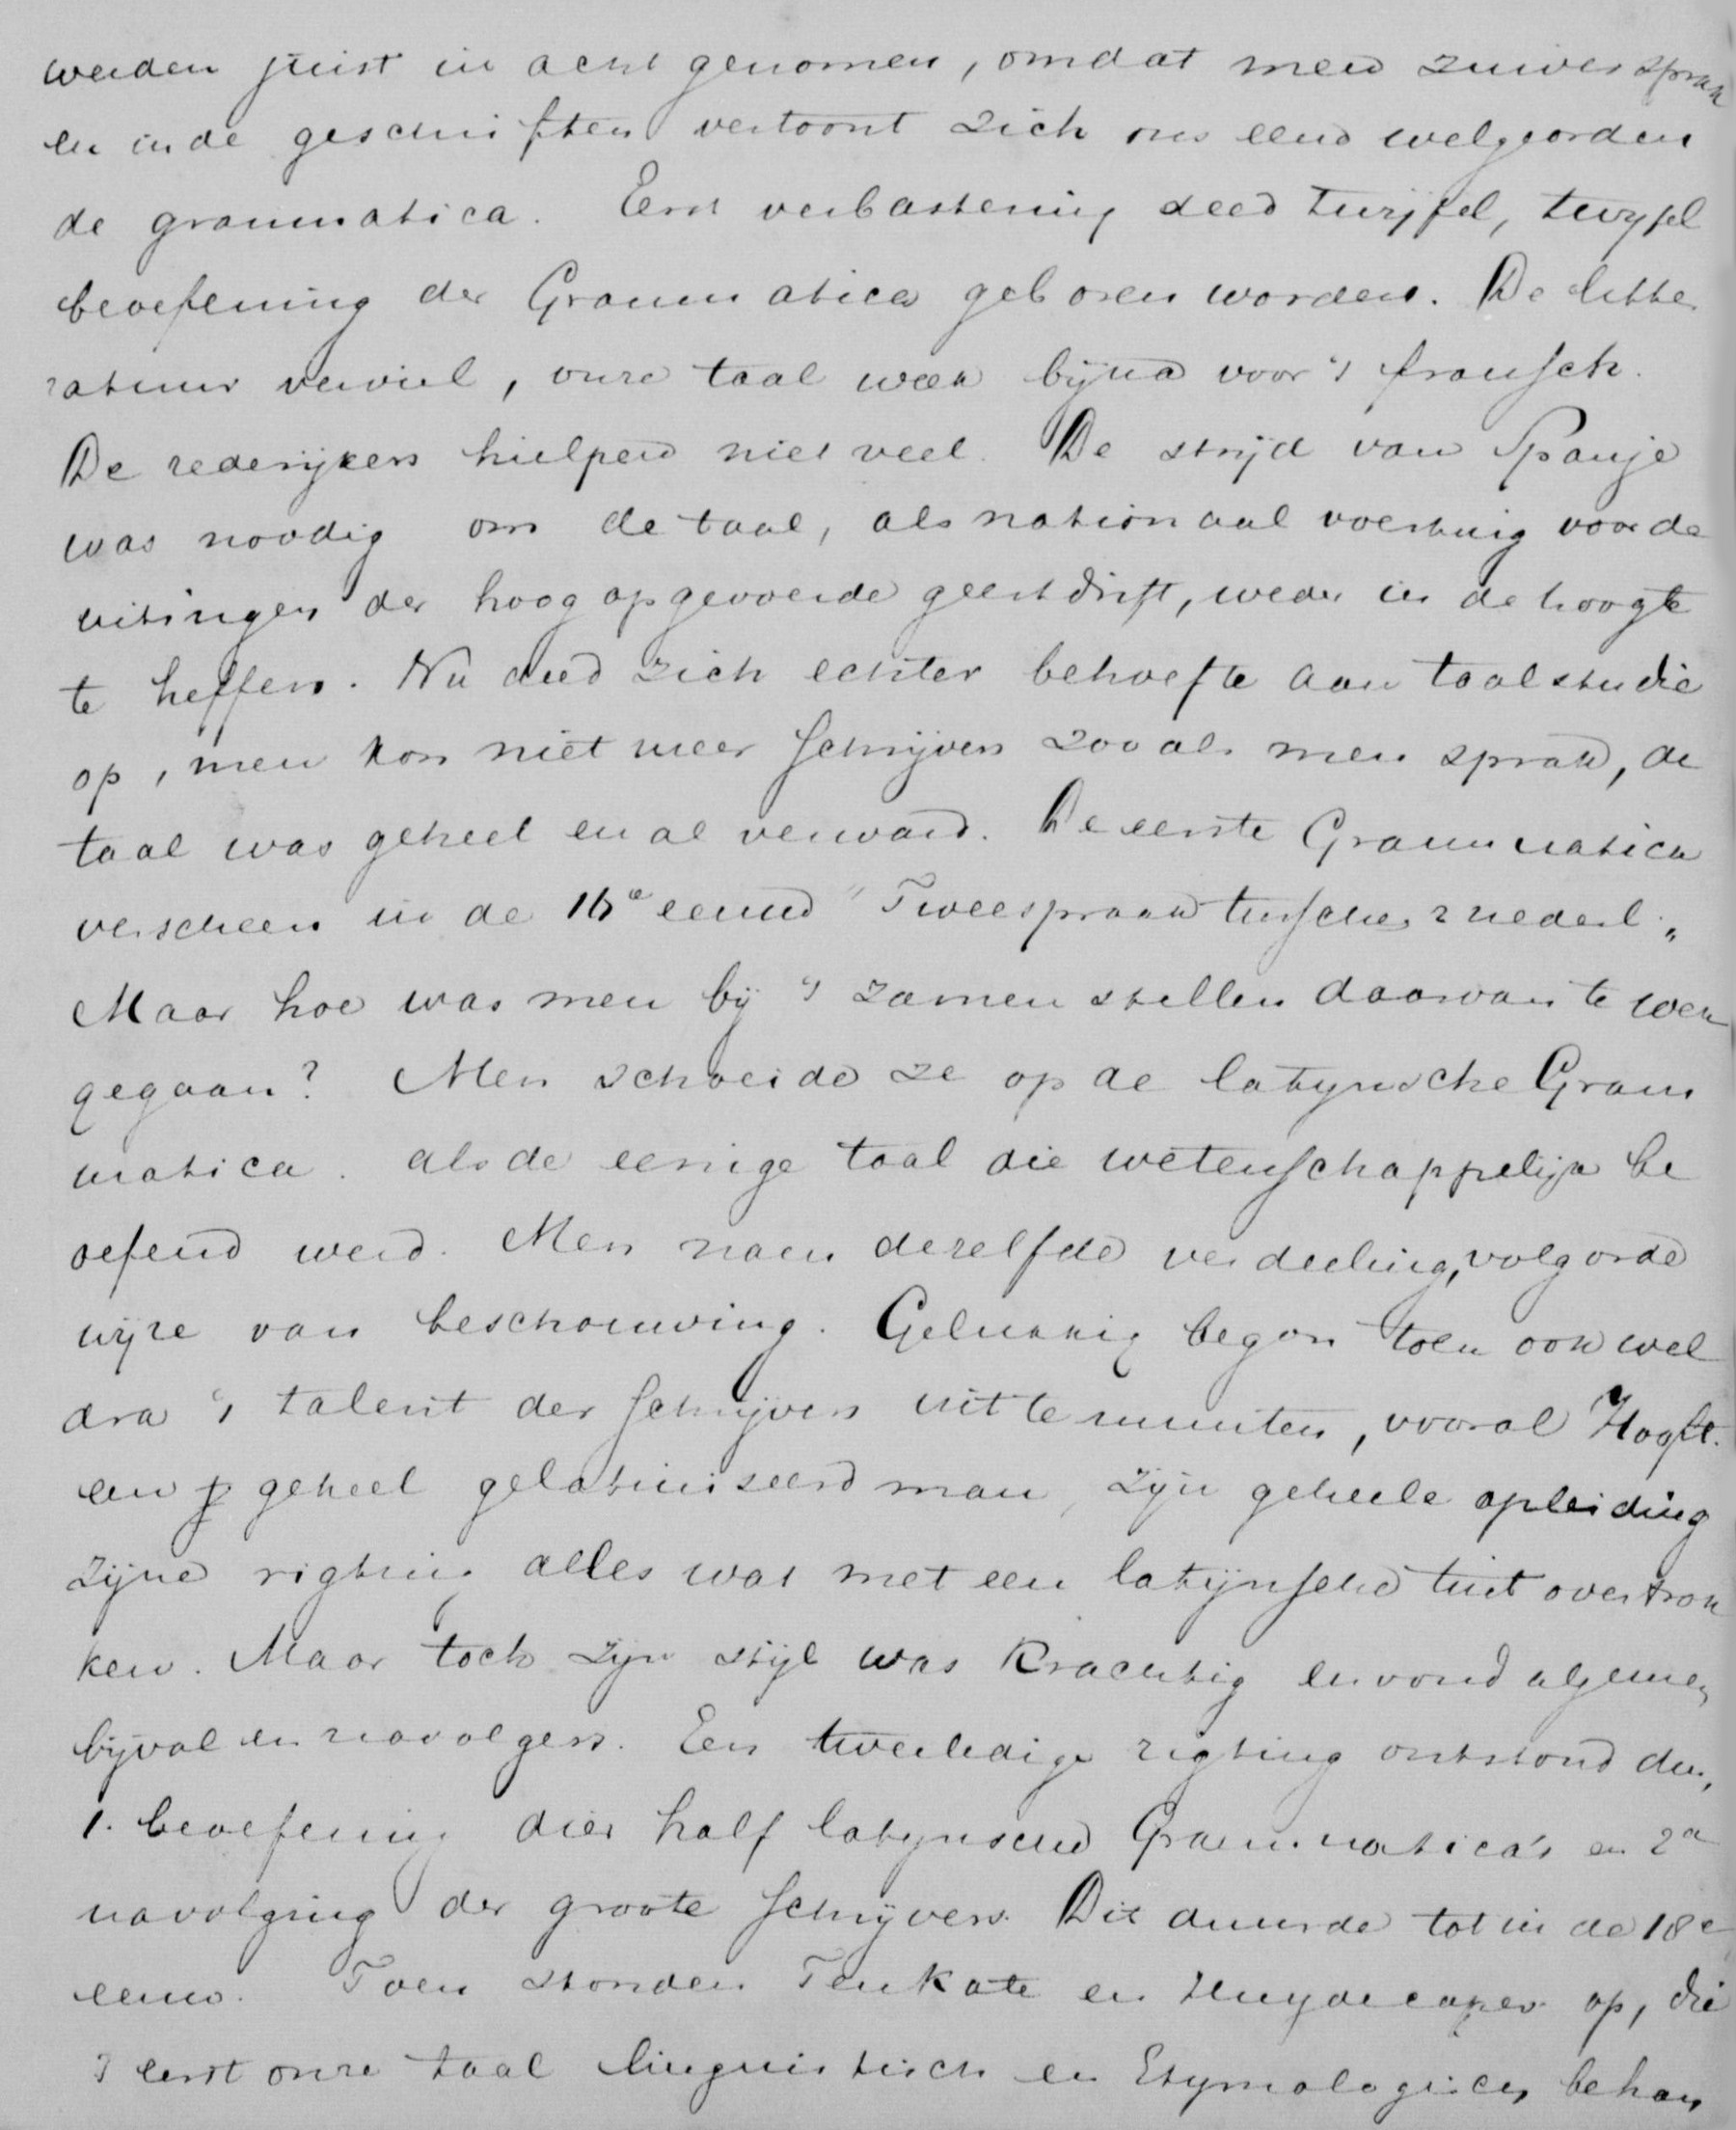 werden juist in acht genomen, omdat men zuiver sprak
en in de geschriften vertoont zich ons eene welgeorden
de grammatica. Eerst verbastering deed twijfel, twyfel
beoefening der Grammatica geboren worden. De litte
ratuur verviel, onze taal week bijna voor 't fransch.
De rederijkers hielpen niet veel. De strijd van Spanje
was noodig om de taal, als nationaal voertuig voor de
uitingen der hoog opgevoerde geestdrift, weder in de hoogte
te heffen. Nu deed zich echter behoefte aan taalstudie
op, men kon niet meer schrijven zooals men sprak, de
taal was geheel en al verward. De eerste Grammatica
verscheen in de 16e eeuw "Tweespraak tusschen 2 nederl."
Maar hoe was men bij 't zamenstellen daarvan te werk
gegaan? Men schoeide ze op de latynsche Gram
matica. als de eenige taal die wetenschappelijk be
oefend werd. Men nam dezelfde verdeeling, volgorde
wijze van beschouwing. Gelukkig begon toen ook wel
dra 't talent der schrijvers uit te munten, vooral Hooft.
een geheel gelatiniseerd man, zijn geheele opleiding
zijne rigting alles was met een latijnsche tint overtrok
ken. Maar toch zijn stijl was krachtig en vond algemeen
bijval en navolgers. Een tweeledige rigting ontstond dus,
1. beoefening dier half latynsche Grammatica's en 2e
navolging der groote schrijvers. Dit duurde tot in de 18e
eeuw. Toen stonden Ten Kate en Huydecoper op, die
't eerst onze taal linguistisch en Etymologisch behan